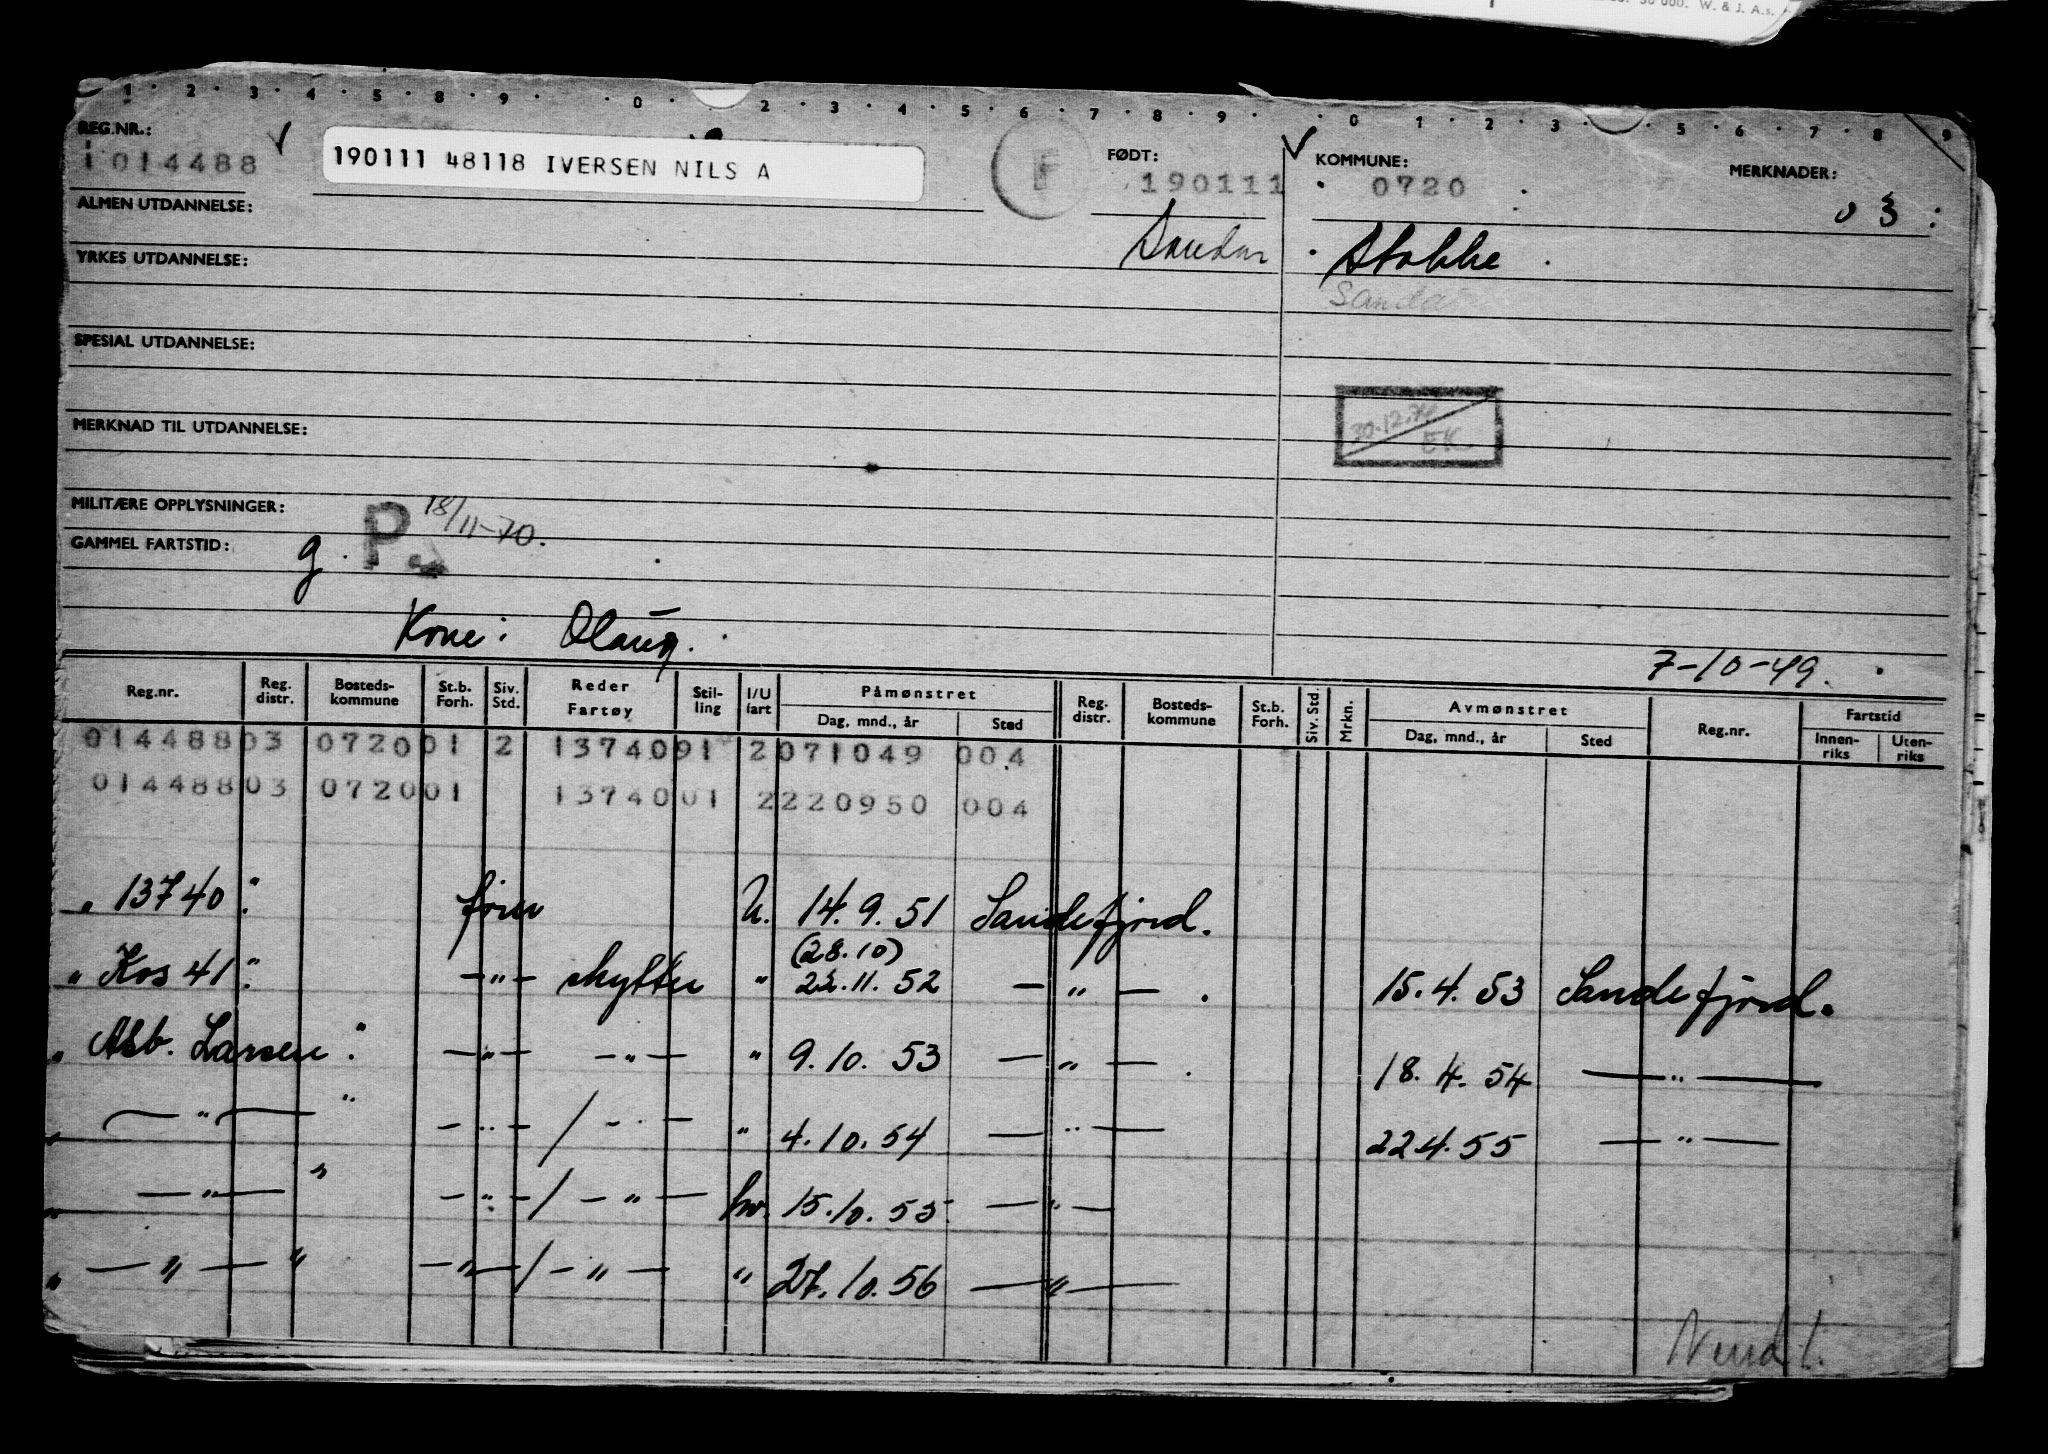 50 000. W. & J. A.s.
1 · 2 · 3 · 4 · 5 · 8 · 9 · · 0 · 2 · 3 · 4 · 5 · 6 · 7 · 8 · 9 · · 0 · 1 · 2 · 3 · 5 · 6 · 7 · 8 · 9
REG.NR.: FØDT: KOMMUNE: MERKNADER:
1014488 190111 48118 IVERSEN NILS A F 190111 0720 03
ALMEN UTDANNELSE:
Sandar Stokke
YRKES UTDANNELSE:
Sandar
SPESIAL UTDANNELSE:
30.12.
EK
MERKNAD TIL UTDANNELSE:
MILITÆRE OPPLYSNINGER: P. 18/11-70.
GAMMEL FARTSTID: g.
Kone: Olaug.
7-10-49.
Reg.nr. Reg. distr. Bosteds-kommune St.b. Forh. Siv. Std. Reder Fartøy Stil-ling I/U fart Påmønstret Dag, mnd., år Sted Reg. distr. Bosteds-kommune St.b. Forh. Siv. Std. Mrkn. Avmønstret Dag, mnd., år Sted Reg.nr. Fartstid Innen-riks Uten-riks
014488 03 0720 01 2 13740 91 2 071049 004
014488 03 0720 01 13740 01 2 220950 004
" 13740 " U. 14. 9. 51 Sandefjord.
(28.10)
" Kos 41 " — " — skytter " 22.11. 52 — " — . 15. 4. 53 Sandefjord.
" Asb. Larsen " — " — — " — " 9. 10. 53 — " — . 18. 4. 54 — " —
" — " — " — " — / — " — " 4. 10. 54 — " — 22.4.55 — " —
" — " — " — " — / — " — hv. 15. 10. 55 — " —
" — " — " — " — / — " — " 27. 10. 56 — " —